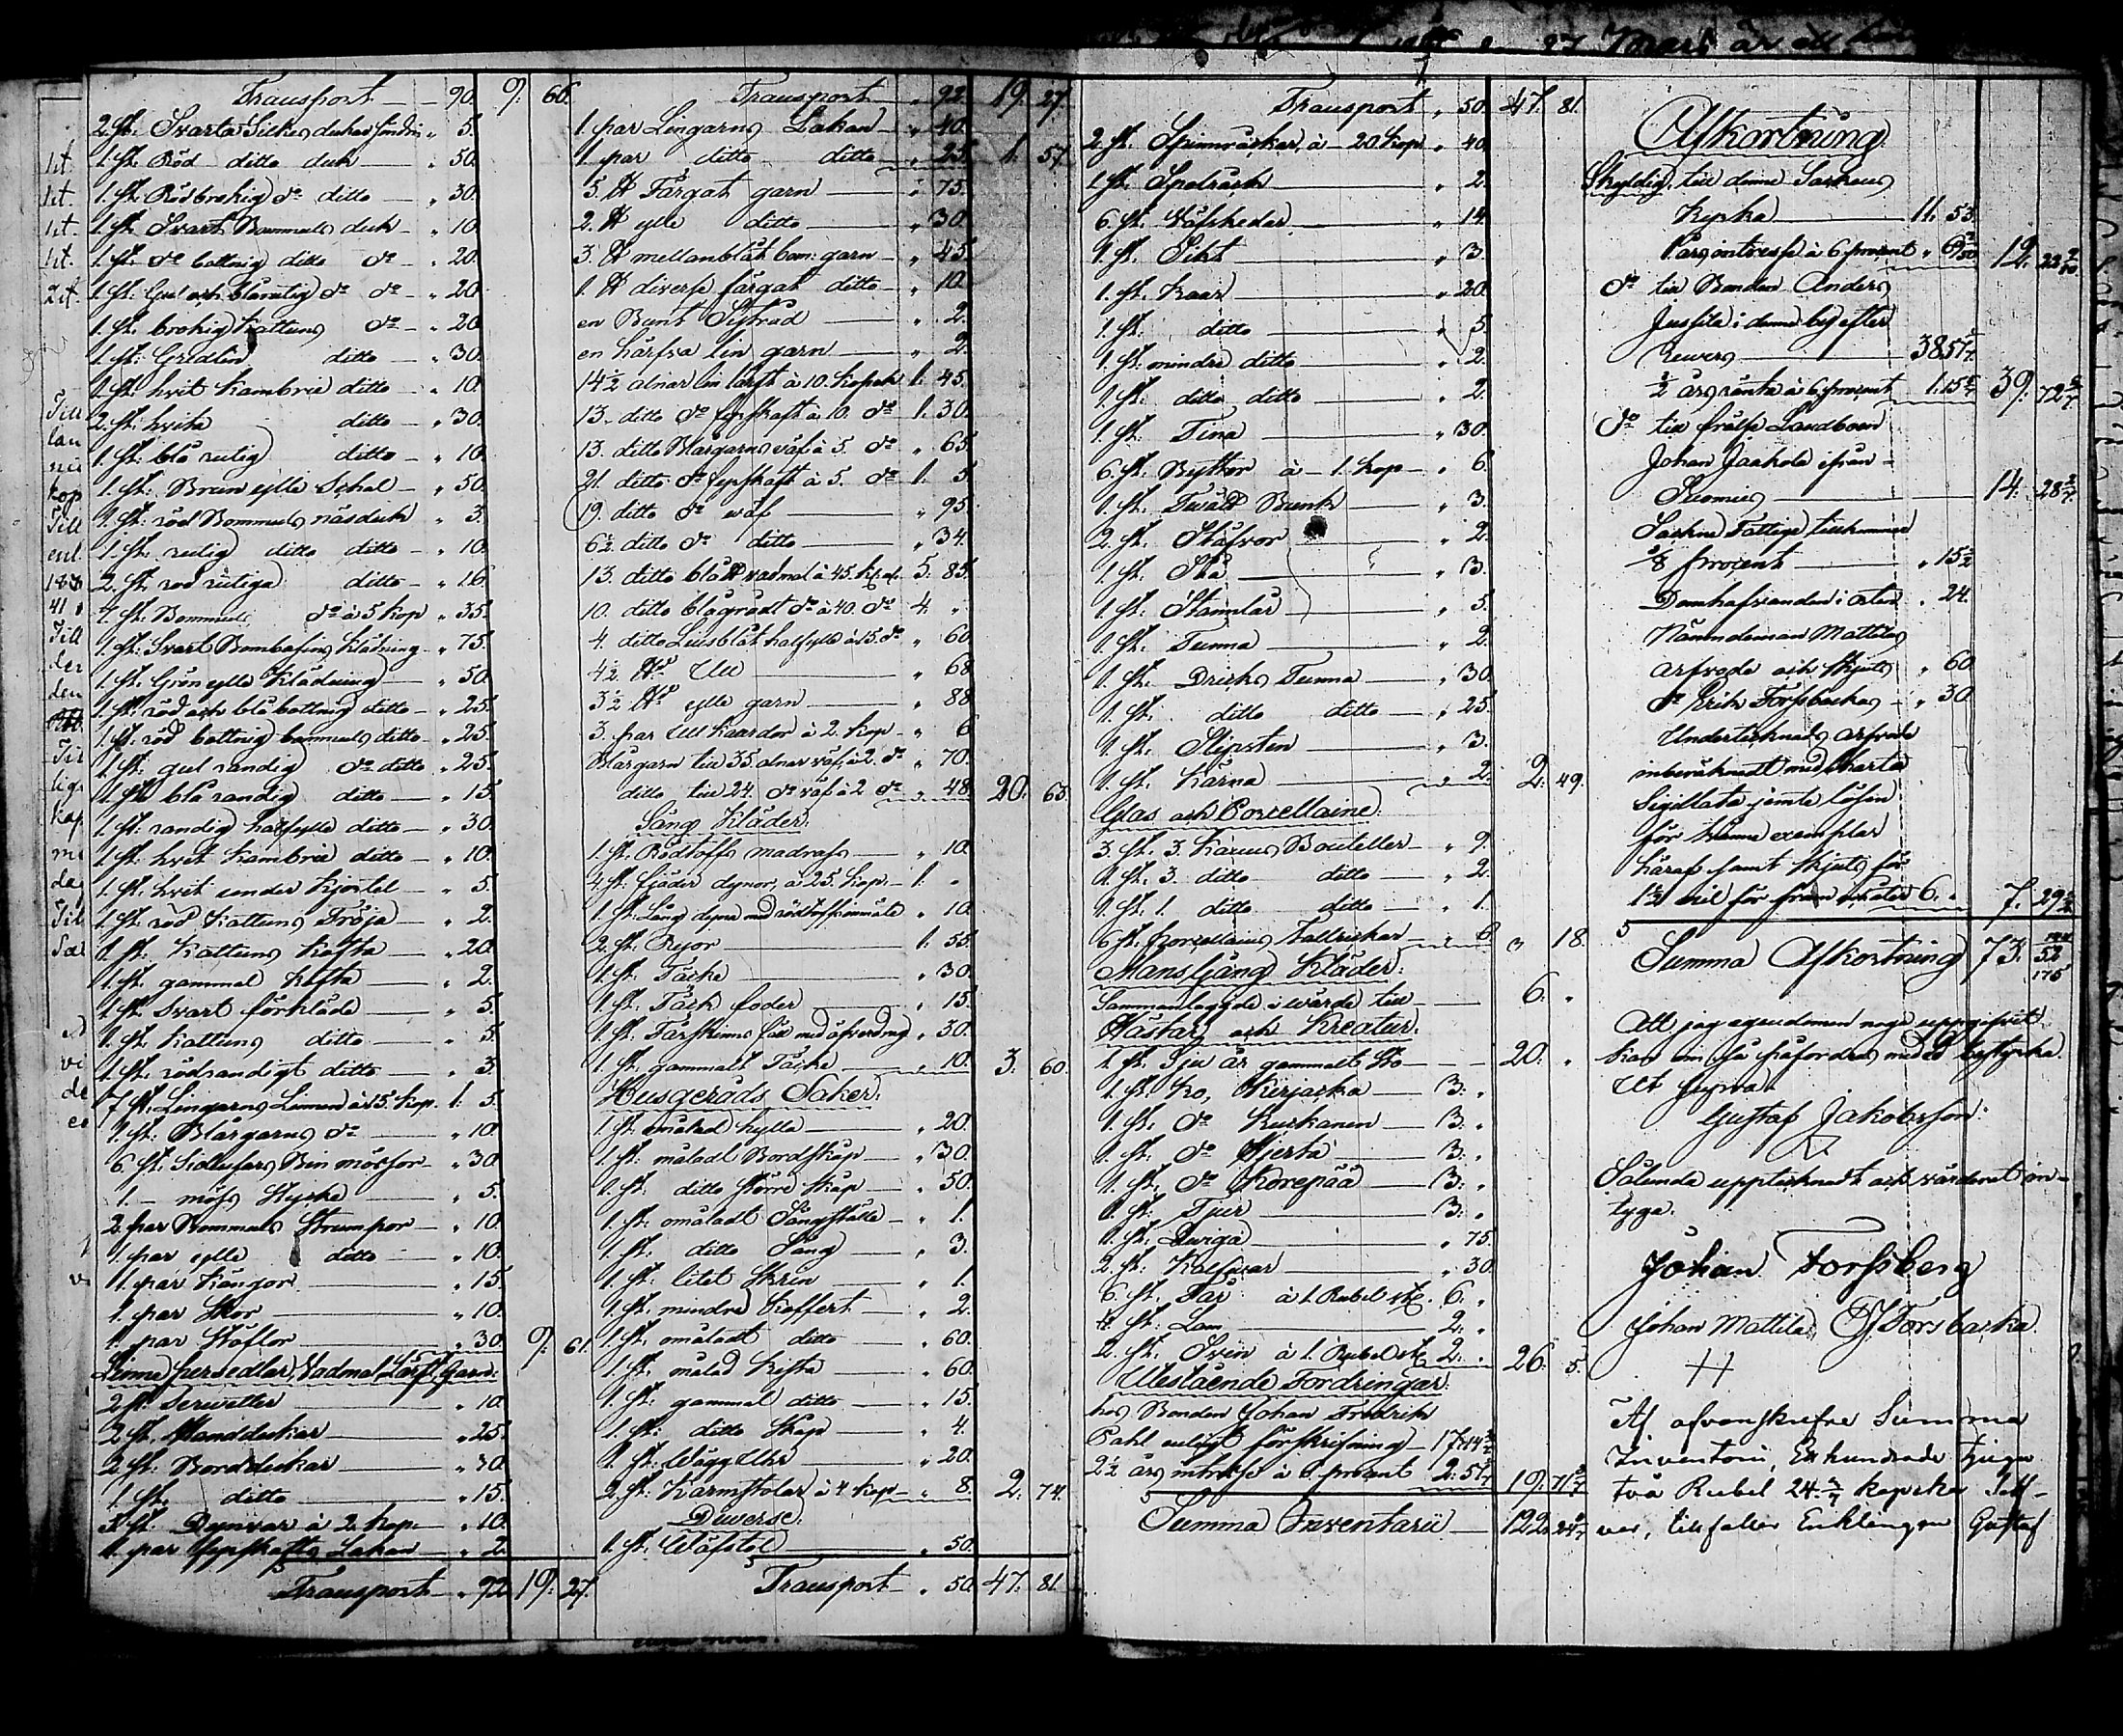 Transport — „ 90. 9: 66.
2. st. Svarta Silkes dukar söndri „ 5.
1. st. Röd ditto duk — „ 50.
1. st. Rödbrokig do ditto — „ 30.
1. st. Svart Bommulls duk — „ 10.
1. st. do bottnig ditto do — „ 20.
1. st. Gul och blårutig do do — „ 20.
1. st. brokig Kattuns do — „ 20.
1. st. Gredlin ditto — „ 30.
1. st. hvit Kambric ditto — „ 10.
2. st. hvita ditto — „ 30.
1. st. blå rutig ditto — „ 10.
1. st. Brun ylle Schal — „ 50.
1. st. röd Bommulls näsduk „ 3.
1. st. rutig ditto ditto — „ 10.
2. st. röd rutiga ditto — „ 16.
7. st. Bommulls do à 5 kop „ 35.
1. st. Svart Bombasins Klädning „ 75.
1. st. Grön ylle Klädning — „ 50.
1. st. röd och blå bottnig ditto — „ 25.
1. st. röd bottnig bommuls ditto „ 25.
1. st. gul randig do ditto „ 25.
1. st. blå randig ditto — „ 15.
1. st. randig halfylle ditto — „ 30.
1. st. hvit Kambric ditto — „ 10.
1. st. hvit under Kjortel — „ 5.
1. st. röd Kattuns Tröja — „ 2.
1. st. Kattuns Kofta — „ 20.
1. st. gammal Kofta — „ 2.
1. st. Svart förkläde — „ 5.
1. st. Kattuns ditto — „ 5.
1. st. rödrandigt ditto — „ 3.
7. st. Lingarns Linnen à 15. kop. 1: 5.
1. st. Blårgarns do — „ 10.
6. st. Bin mössor — „ 30.
1. — möss Stycke — „ 5.
2. par Bommuls Strumpor — „ 10.
1. par ylle ditto — „ 10.
1. par Kängor — „ 15.
1. par Skor — „ 10.
1. par Stöflor — „ 30. 9: 61.
Linne persedlar, Vadmal, Lärft, Garn:
2. st. Servetter — „ 10.
2. st. Handdukar — „ 25.
2. st. Borddukar — „ 30.
1. st. ditto — „ 15.
5. st. Dynvar à 2. kop. — „ 10.
1. par Lakan — „ 2.
Transport — „ 92. 19: 27.
Transport — „ 92. 19. 27.
1. par Lingarns Lakan — „ 40.
1. par ditto ditto — „ 25. 1. 57.
5. ℔ Färgat garn — „ 75.
2. ℔ ylle ditto — „ 30.
3. ℔ mellanblåt bom: garn — „ 45.
1. ℔ diverse färgat ditto — „ 10.
en Bunt Sytråd — „ 2.
en härfva lin garn — „ 2.
14½ alnar lin lärft à 10. kopek 1: 45.
13. ditto do à 10. do 1: 30.
13. ditto Blårgarns väf à 5. do „ 65.
21. ditto do à 5. do 1: 5.
19. ditto do wäf — „ 95.
6½ ditto do ditto — „ 34.
13. ditto blått vadmal à 45. kop. 5: 85.
10. ditto blågrådt do à 40. do 4: „
4. ditto Ljusblåt halfylle à 15. do „ 60.
4½ ℔ Ull — „ 68.
3½ ℔ ylle garn — „ 88.
3. par Ull Kardor à 2. kop — „ 6.
Blårgarn till 35. alnar väf à 2. do „ 70.
ditto till 24. do väf à 2 do „ 48. 20: 65.
Säng Kläder:
1. st. Rödtoffs madrass — „ 10.
4. st. fjäder dynor, à 25. kop. — 1: „
1. st. Lång dyna med rödtoffs „ 10.
2. st. Ryor — 1: 55.
1. st. Täcke — „ 30.
1. st. Täck foder — „ 15.
1. st. Fårskinns fäll med öfverdrag „ 30.
1. st. gammalt Täcke — „ 10. 3: 60.
Husgeråds Saker:
1. st. målad hylla — „ 20.
1. st. måladt Bordskåp — „ 30.
1. st. ditto större Skåp — „ 50.
1. st. omåladt Sängställe — „ 1.
1. st. ditto Säng — „ 3.
1. st. litet Skrin — „ 1.
1. st. mindre Koffert — „ 2.
1. st. omåladt ditto — „ 60.
1. st. målad Kista — „ 60.
1. st. gammal ditto — „ 15.
1. st. ditto Skåp — „ 4.
1. st. Wägg Uhr — „ 20.
2. st. Karmstolar à 4 kop — „ 8. 2: 74.
Diverse:
1. st. Wäfstol — „ 50.
Transport — „ 50. 47: 81.
27 Mars är
Transport „ 50. 47. 81.
2. st. Spinnråckar, à 20. kop. „ 40.
1. st. Spolråck — „ 2.
6. st. Wäfskedar — „ 14.
1. st. Sikt — „ 3.
1. st. Kaar — „ 20.
1. st. ditto — „ 5.
1. st. mindre ditto — „ 2.
1. st. ditto ditto — „ 2.
1. st. Tina — „ 30.
6. st. Byttor à 1. kop — „ 6.
1. st. Twätt Bunk — „ 3.
2. st. Stäfvor — „ 2.
1. st. Så — „ 3.
1. st. Stamlar — „ 5.
1. st. Tunna — „ 2.
1. st. Dricks Tunna — „ 30.
1. st. ditto ditto — „ 25.
1. st. Slipsten — „ 3.
1. st. Kärna — „ 2. 2: 49.
Glas och Porcellaine:
3. st. 3. Karius Bouteller „ 9.
1. st. 3. ditto ditto — „ 2.
1. st. 1. ditto ditto — „ 1.
6. st. porcellains Tallrickar — „ 6. „ 18.
Mans Gång Kläder:
Sammanlaggde i wärde till — 6. „
Hästar och Kreatur:
1. st. Sju år gammalt Sto — 20. „
1. st. Ko, Kirjacka — 3: „
1. st. do Kuskanen — 3: „
1. st. do Hjerta — 3: „
1. st. do Korepää — 3: „
1. st. Tjur — 3: „
1. st. Qwiga — „ 75.
2. st. Kalfvar — „ 30.
6. st. Får à 1. Rubel st. 6. „
4. st. Lam — 2: „
2. st. Svin à 1. Rubel st. 2: „ 26: 5.
Utestående Fordringar:
hos Bonden Johan Fredrik
Pahl enligt förskrifning — 17:14 2/7
2½ års intresse à 6 procent 2: 57 19: 71
Summa Inventarii — 122: 24
Afkortning:
Skyldig till denna Socknens
Kyrka — 11. 53.
1 års intresse à 6 procent „ 69 12: 22
do till Bonden Anders
Jussila i denna by efter
Revers — 38:57
½ års ränta à 6 procent 1:15 39: 72
do till frälse Landboen
Johan Jaakola ifrån
14: 28
Sockne Fattige tillkommer
⅛ procent — „ 15
Domhafvanden i orten „ 24.
Nämndeman Mattilas
arfvode och skjuts „ 60.
do Erik Forsbackas — „ 30.
Undertecknads arfvode
inberäknadt med Charta
Sigillata jemte lösen
för tvänne exemplar
häraf samt skjuts för
1½ mil för fram 6. „ 7. 29
Summa Afkortning 73. 52
Att jag egendomen noga uppgifvit
kan om så fordras med Ed bestyrka.
Ut supra.
Gustaf Jakobsson:
Sålunda upptecknadt och värderat in-
tyga.
Johan Forssberg
Johan Mattila EJ Forsbacka.
Af ofvanskrefne Summa
Inventarii, Ett hundrade tjugu
två Rubel 24 2/7 kopeker Silf-
ver, tillfaller Enklingen Gustaf